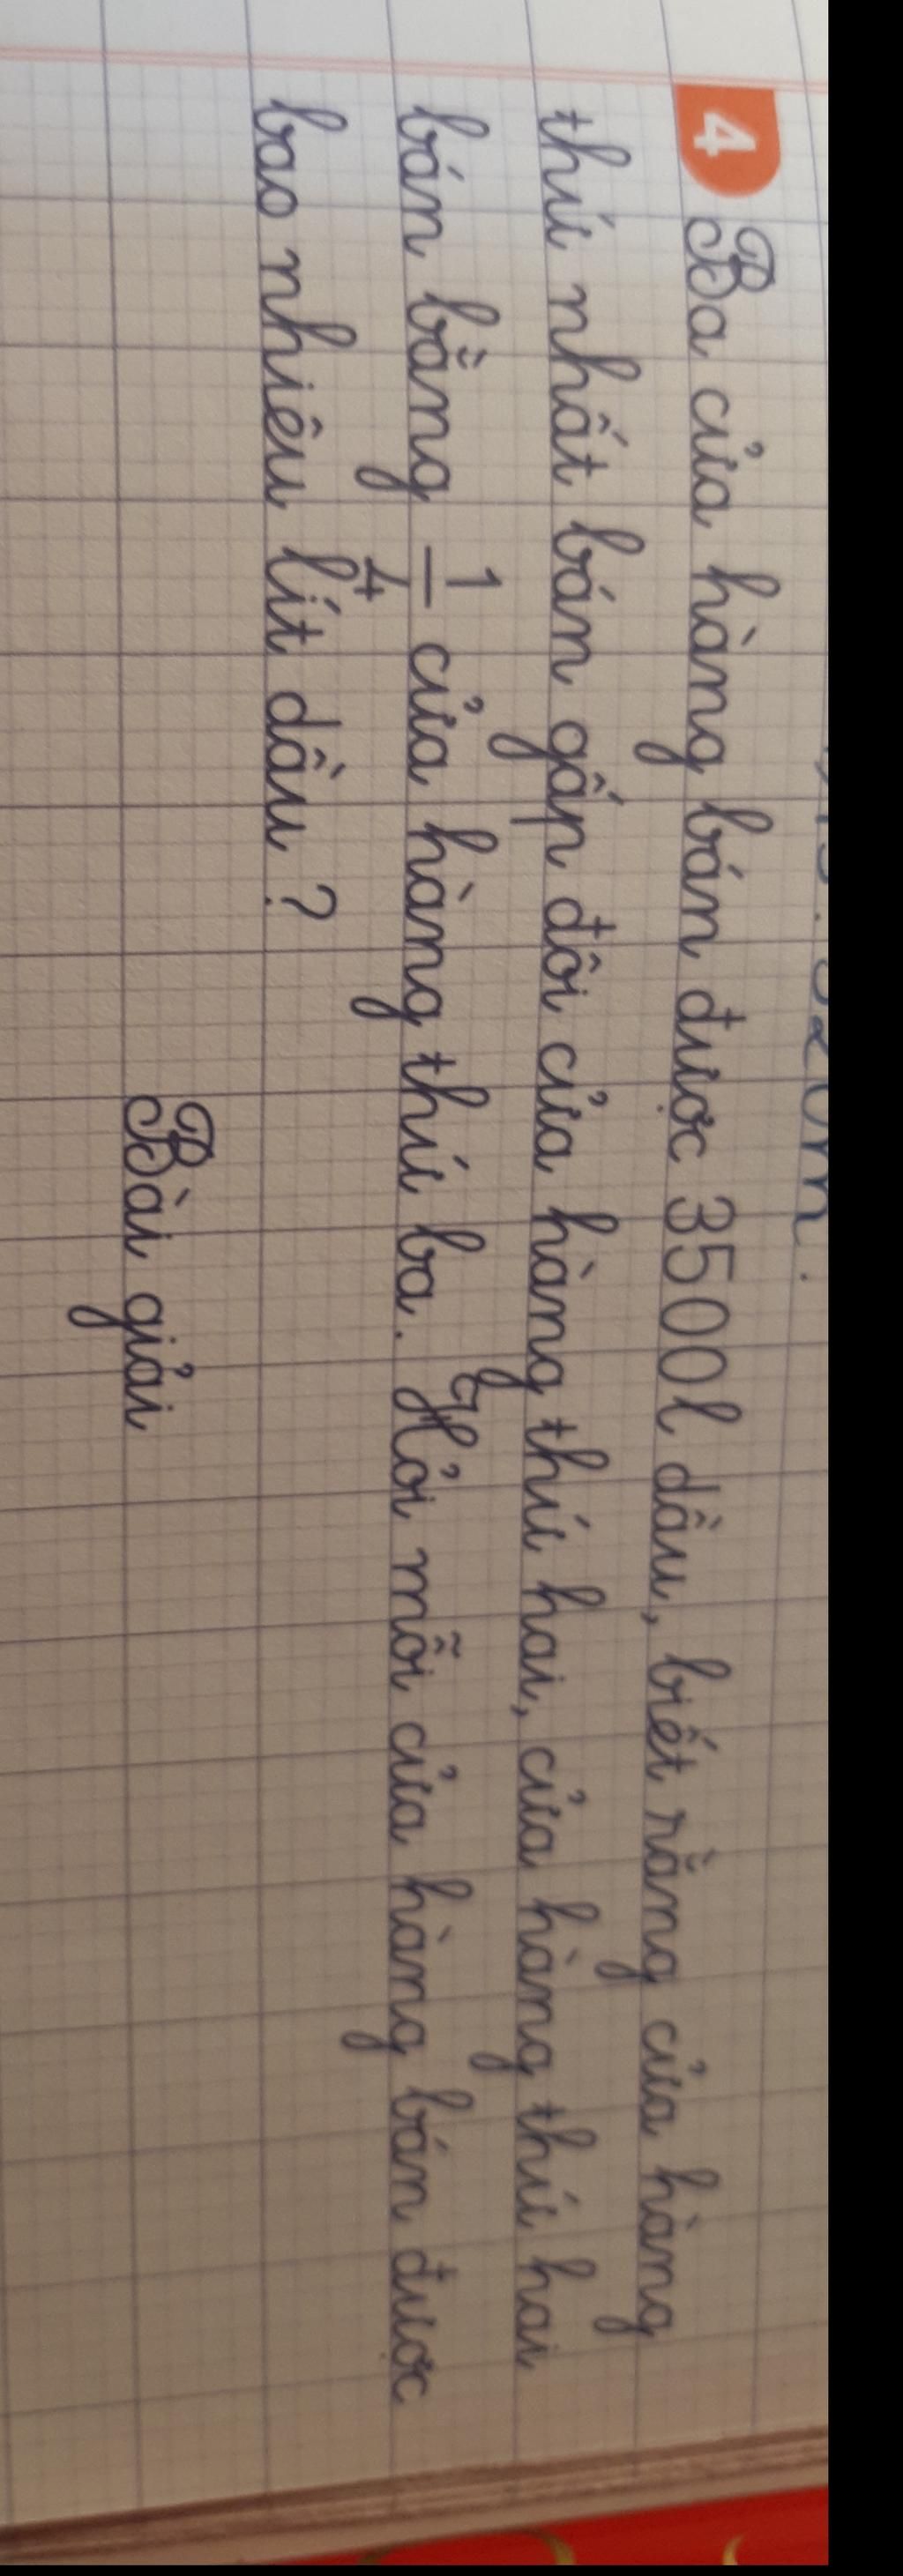 4 Ba cửa hàng bán được 3500l dầu, biết rằng cửa hàng
thứ nhất bán gấp đôi cửa hàng thứ hai, cửa hàng thứ hai
bán bằng 1/4 cửa hàng thứ ba. Hỏi mỗi cửa hàng bán được
bao nhiêu lít dầu ?
Bài giải